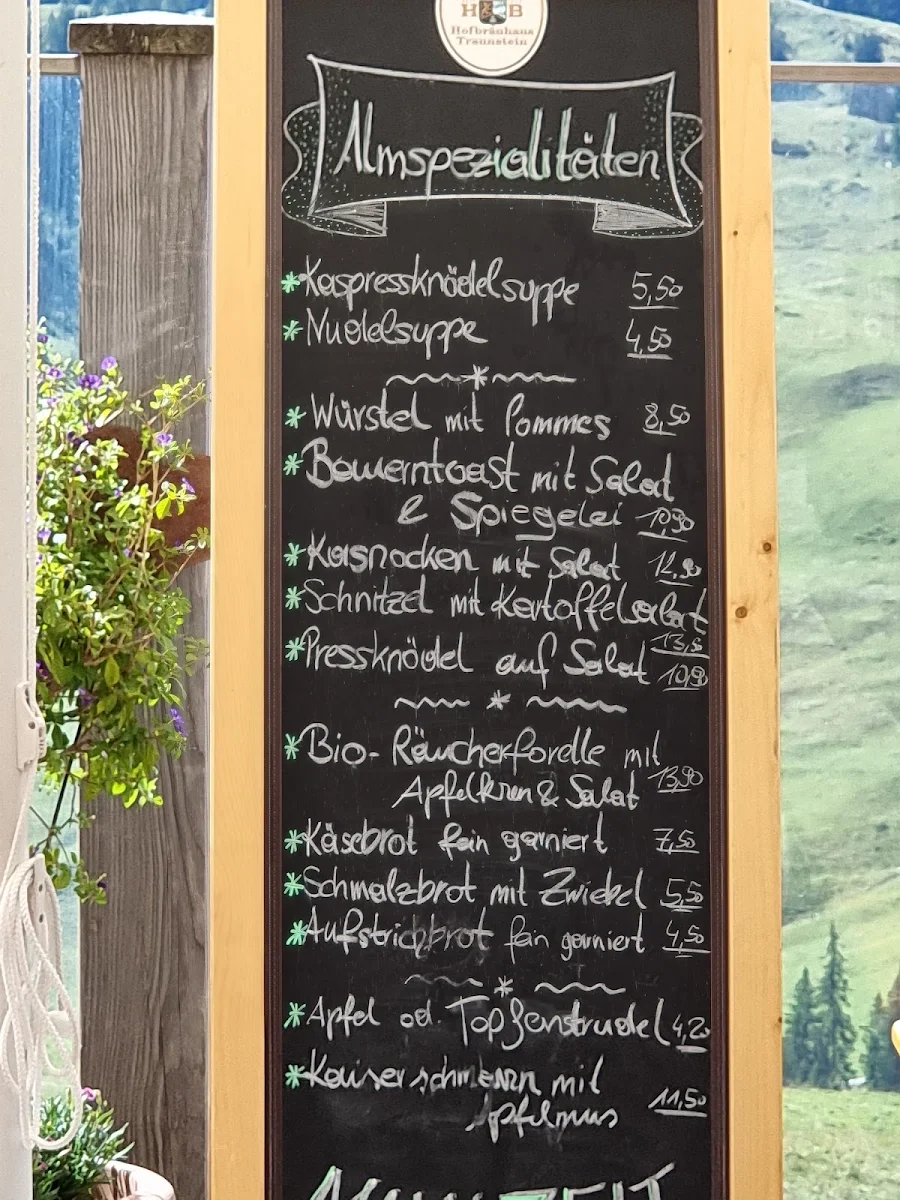 H B
Hofbräuhaus
Traunstein
Almspezialitäten
*Kaspressknödelsuppe 5,50
*Nudelsuppe 4,50
*Würstel mit Pommes 8,50
*Bauerntoast mit Salat
& Spiegelei 10,90
*Kasnocken mit Salat 12,90
*Schnitzel mit Kartoffelsalat
13,50
*Pressknödel auf Salat 10,90
*Bio-Räucherforelle mit
Apfelkren & Salat 13,90
*Käsebrot fein garniert 7,50
*Schmalzbrot mit Zwiebel 5,50
*Aufstrichbrot fein garniert 4,50
*Apfel od. Topfenstrudel 4,20
*Kaiserschmarrn mit
Apfelmus 11,50